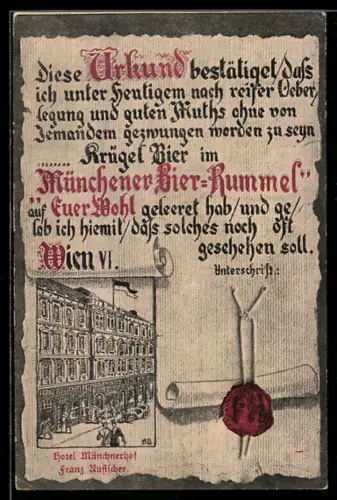 Diese Urkund bestätiget/daß
ich unter Heutigem nach reifer Ueber
legung und guten Muths ohne von
Jemandem gezwungen worden zu seyn
........ Krügel Bier im
"Münchener Bier=Rummel"
auf Euer Wohl geleeret hab/und ge/
lob ich hiemit/daß solches noch oft
Wien VI. geschehen soll.
Unterschrift:
Hotel Münchnerhof
Franz Aufischer